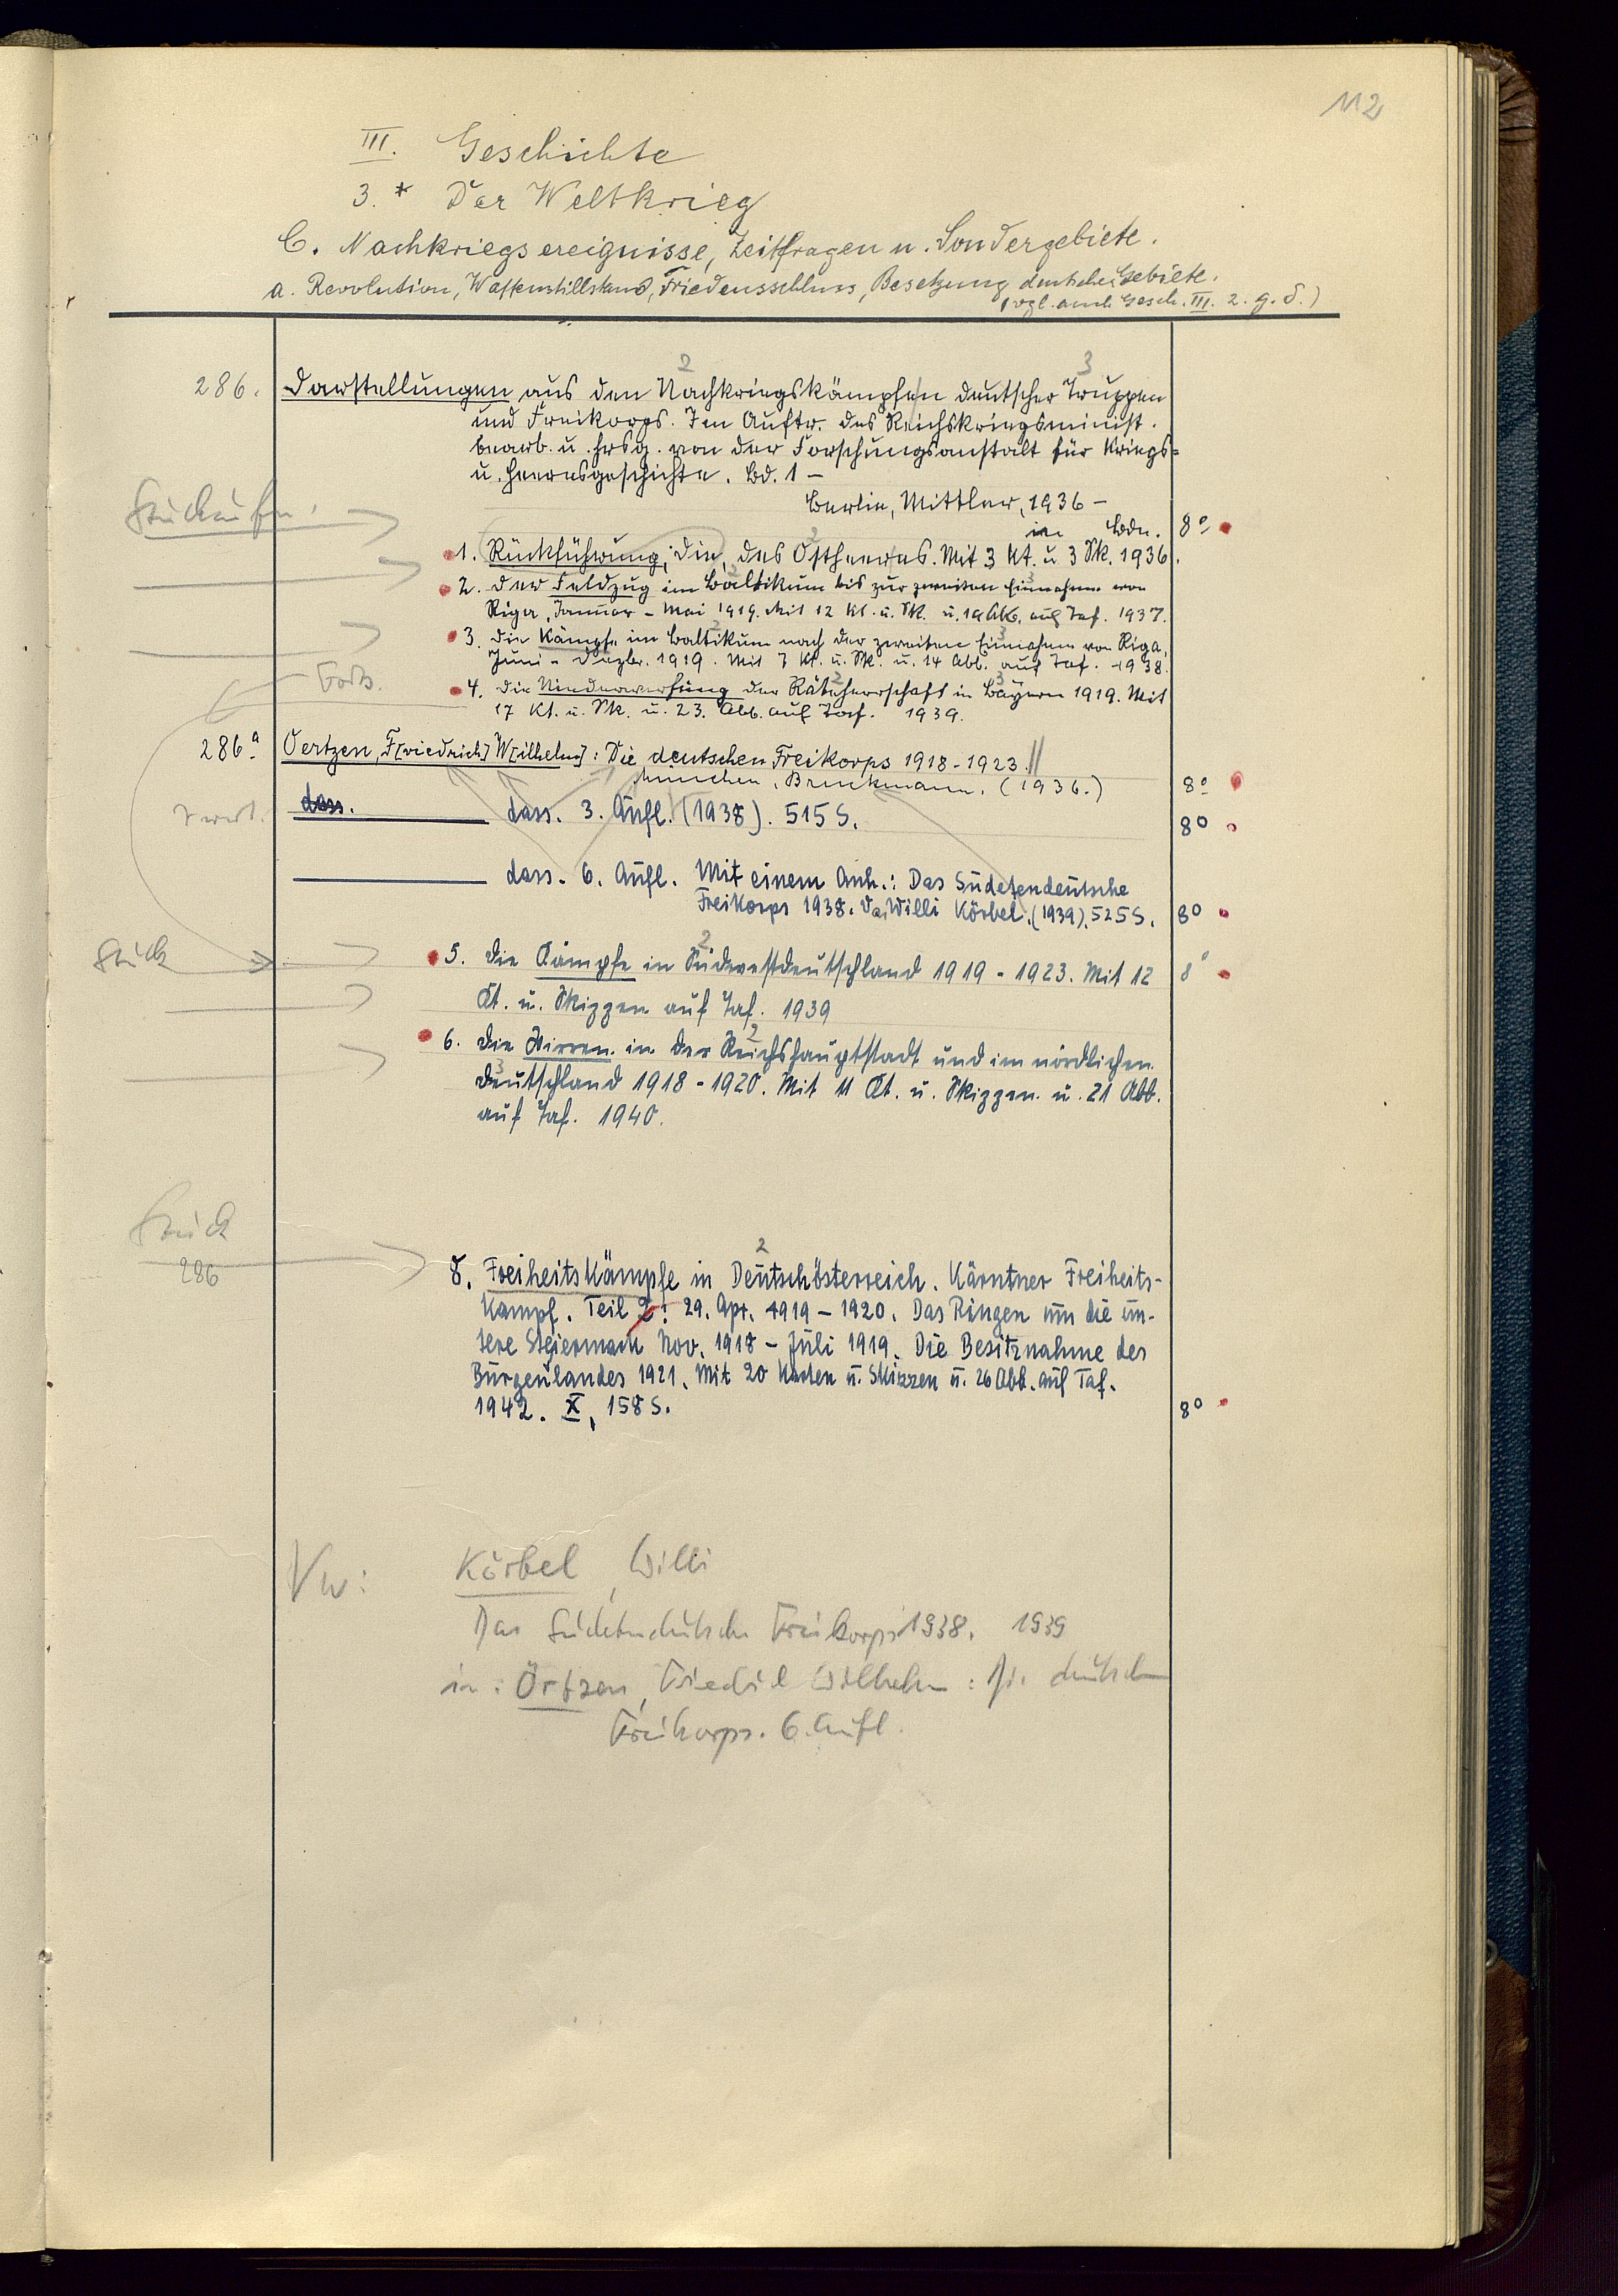 112
III. Geschichte
3.* Der Weltkrieg
C. Nachkriegsereignisse, Zeitfragen u. Sondergebiete.
a. Revolution, Waffenstillstand, Friedensschluss, Besetzung deutscher Gebiete.
(vgl. auch Gesch. III. 2. g. d.)
2 3
286. Darstellungen aus den Nachkriegskämpfen deutscher Truppen
und Freikorps. Im Auftr. des Reichskriegsminist.
bearb. u. hrsg. von der Forschungsanstalt für Kriegs=
u. Heeresgeschichte. Bd. 1 –
Berlin, Mittler, 1936 –
in Bdn. 8°
1. Rückführung, Die, des Ostheeres. Mit 3 Kt. u 3 Sk. 1936.
2. Der Feldzug im Baltikum bis zur zweiten Einnahme von
Riga, Januar – Mai 1919. Mit 12 Kt. u. Sk. u. 19 Abb. auf Taf. 1937.
3. Die Kämpfe im Baltikum nach der zweiten Einnahme von Riga,
Juni – Dezbr. 1919. Mit 7 Kt. u. Sk. u. 14 Abb. auf Taf. 1938.
Forts.
4. Die Niederwerfung der Räteherrschaft in Bayern 1919. Mit
17 Kt. u. Sk. u. 23. Abb. auf Taf. 1939.
286a Oertzen, F[riedrich] W[ilhelm]: Die deutschen Freikorps 1918-1923.
München, Bruckmann. (1936.) 8°
dass. dass. 3. Aufl. (1938). 515 S. 8°
dass. 6. Aufl. Mit einem Anh.: Das Sudetendeutsche
Freikorps 1938. Von Willi Körbel. (1939). 525 S. 8°
Stück
2
5. Die Kämpfe in Südwestdeutschland 1919 - 1923. Mit 12 8°
Kt. u. Skizzen auf Taf. 1939
6. Die Wirren in der Reichshauptstadt und im nördlichen
Deutschland 1918 - 1920. Mit 11 Kt. u. Skizzen u. 21 Abb.
auf Taf. 1940.
Stück
286
2
8. Freiheitskämpfe in Deutschösterreich. Kärntner Freiheits-
kampf. Teil 2: 29. Apr. 1919 – 1920. Das Ringen um die un-
tere Steiermark Nov. 1918 – Juli 1919. Die Besitznahme des
Burgenlandes 1921. Mit 20 Karten u. Skizzen u. 26 Abb. auf Taf.
1942. X, 158 S. 8°
Vw: Körbel, Willi
Das Sudetendeutsche Freikorps 1938. 1939
in: Örtzen, Friedrich Wilhelm: Die deutschen
Freikorps. 6. Aufl.